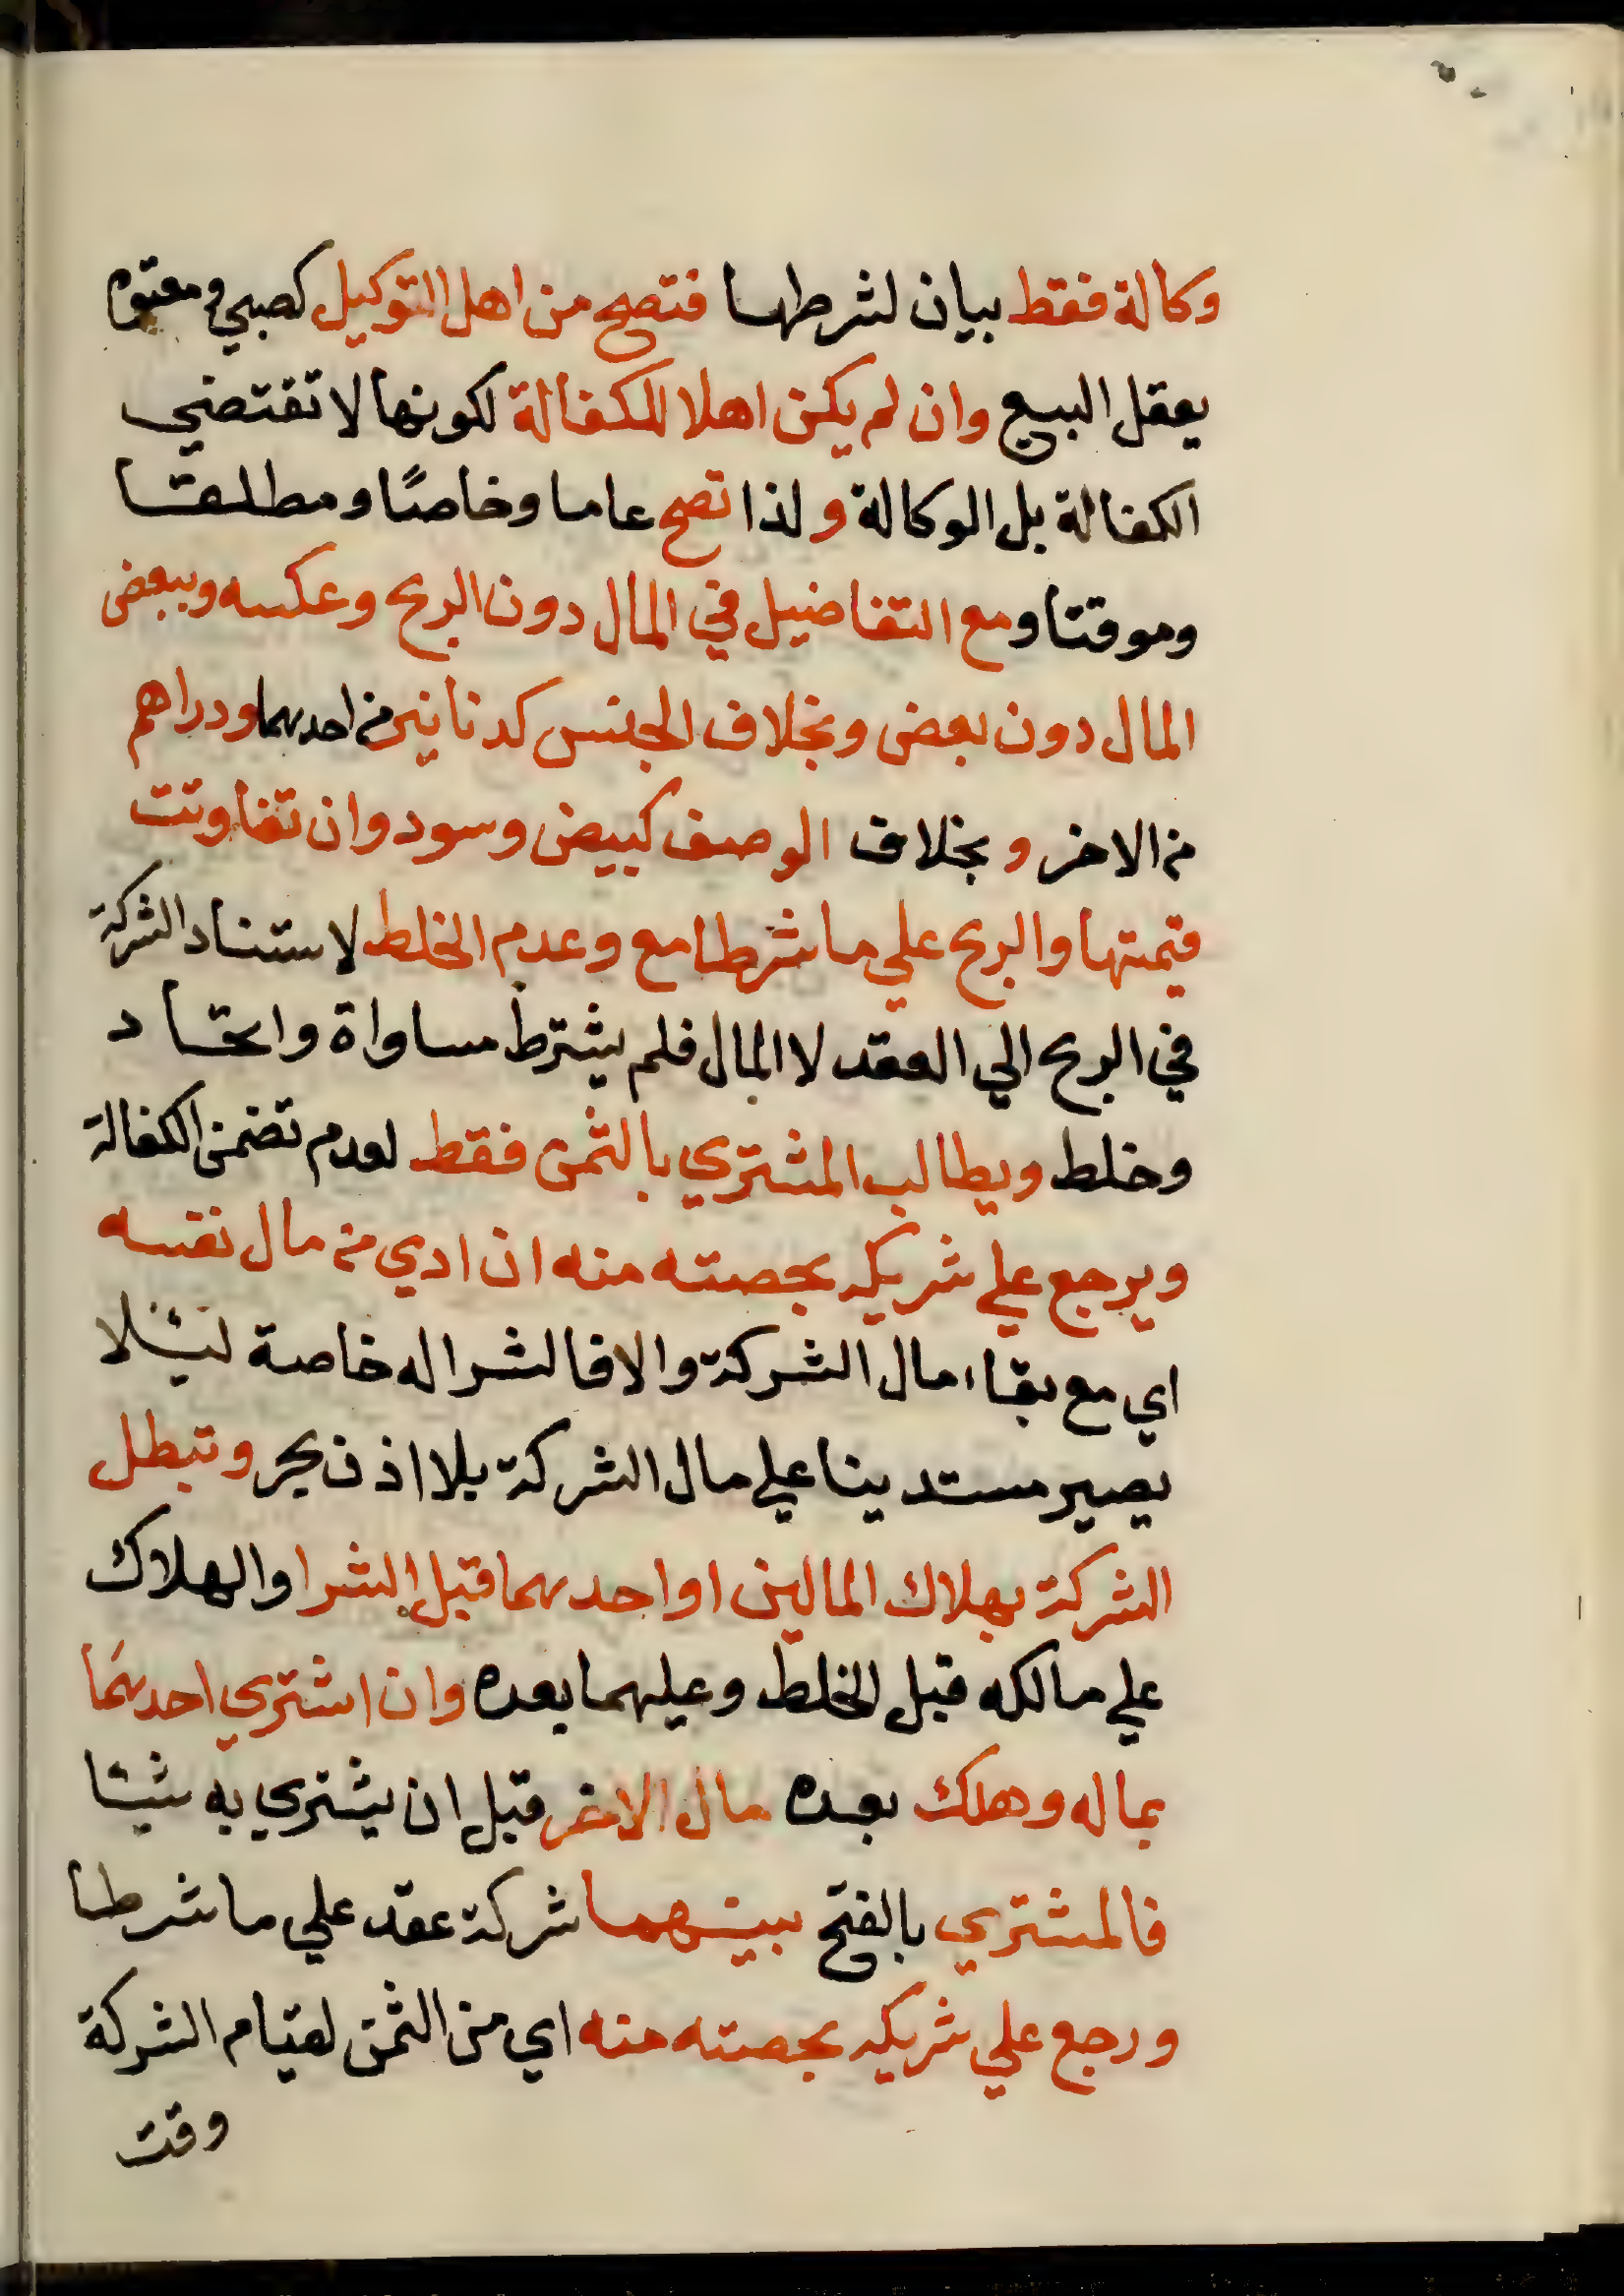 وكالة فقط بيان لشرطها فتصح من اهل التوكيل كصبي ومعتوه
يعقل البيع وان لم يكن اهلا للكفالة لكونها لا تقتضي
الكفالة بل الوكالة ولذا تصح عاما وخاصًا ومطلقا
وموقتا ومع التفاضيل في المال دون الربح وعكسه وببعض
المال دون بعض وبخلاف الجنس كدنانير من احدهما ودراهم
من الاخر وبخلاف الوصف كبيض وسود وان تفاوتت
قيمتها والربح علي ما شرطا مع وعدم الخلط لاستناد الشركة
في الربح الي العقد لا المال فلم يشترط مساواة واتحاد
وخلط ويطالب المشتري بالثمن فقط لعدم تضمن الكفالة
ويرجع علي شريكه بحصته منه ان ادي من مال نفسه
اي مع بقاء مال الشركة والا فالشرا له خاصة لئلا
يصير مستدينا علي مال الشركة بلا اذن بحر وتبطل
الشركة بهلاك المالين او احدهما قبل الشرا والهلاك
علي مالكه قبل الخلط وعليهما بعده وان اشتري احدهما
بماله وهلك بعده مال الاخر قبل ان يشتري به شيئا
فالمشتري بالفتح بينهما شركة عقد علي ما شرطا
ورجع علي شريكه بحصته منه اي من الثمن لقيام الشركة
وقت